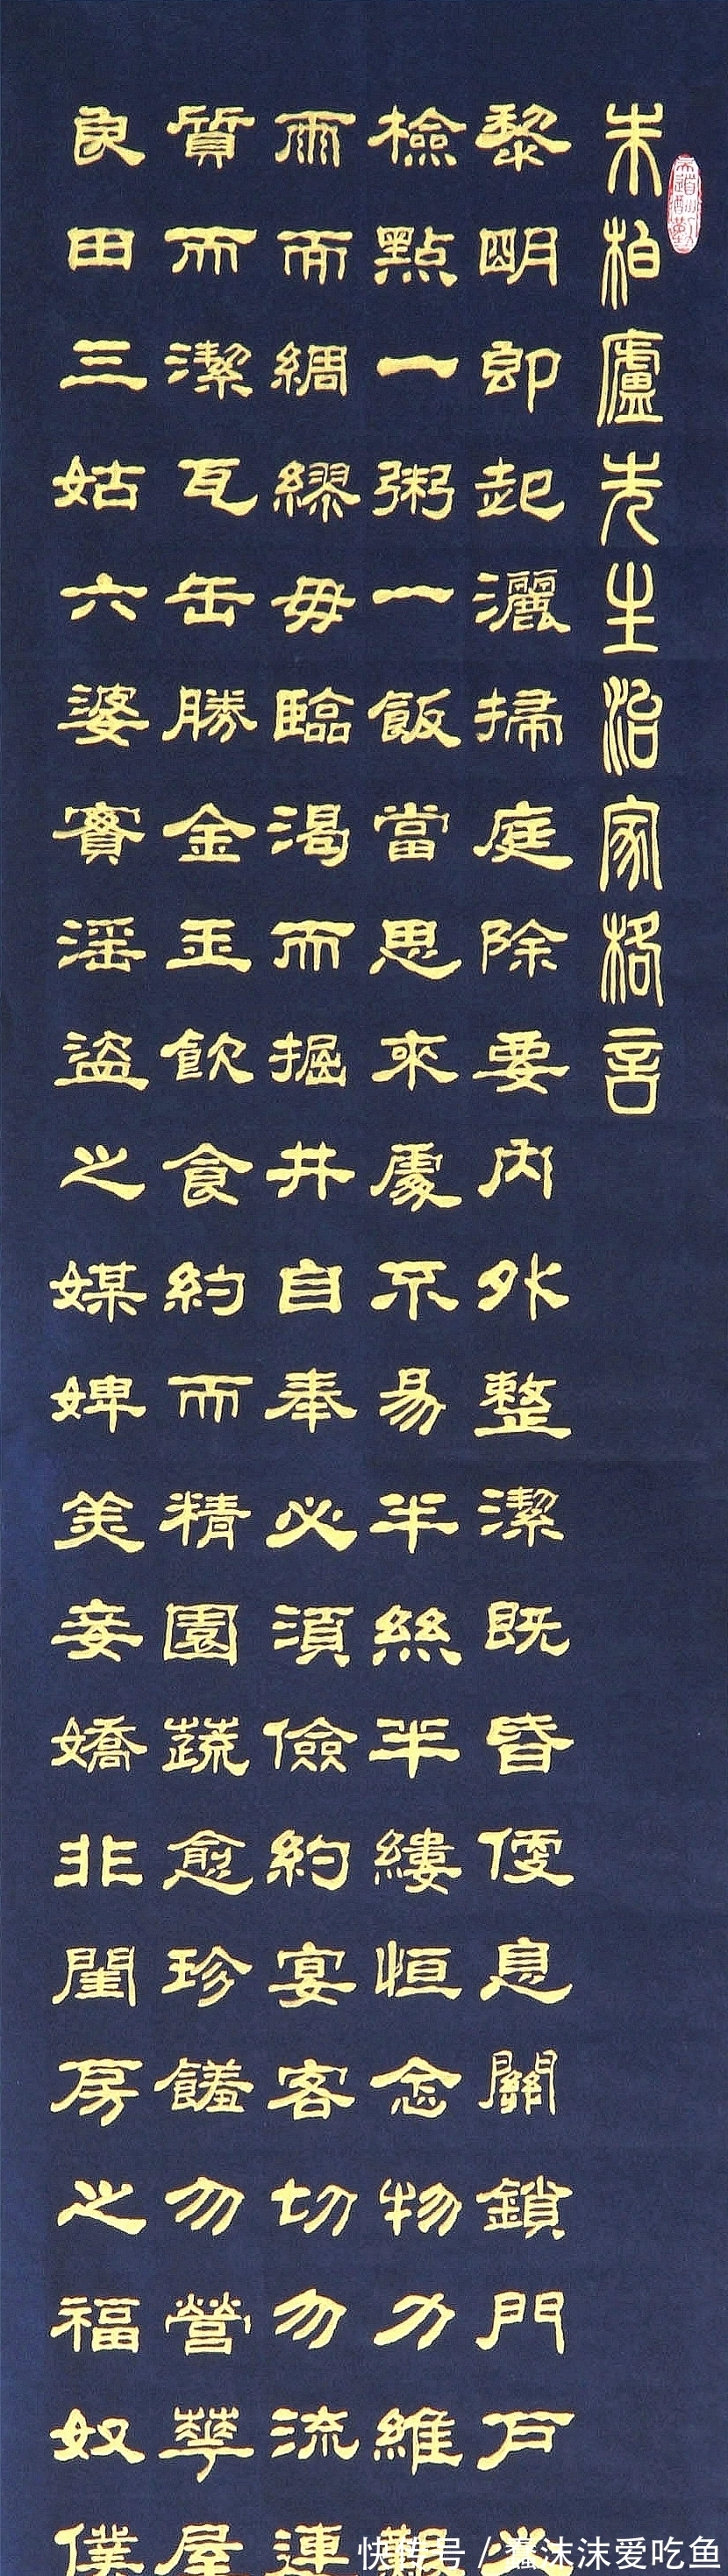 天道酬勤
朱柏廬先生治家格言
黎明即起灑掃庭除要內外整潔既昏便息關鎖門戶必
檢點一粥一飯當思來處不易半絲半縷恒念物力維艱
雨而綢繆毋臨渴而掘井自奉必須儉約宴客切勿流連
質而潔瓦缶勝金玉飲食約而精園蔬愈珍饈勿營華屋
良田三姑六婆實淫盜之媒婢美妾嬌非閨房之福奴僕
快传号 / 蠢沫沫爱吃鱼